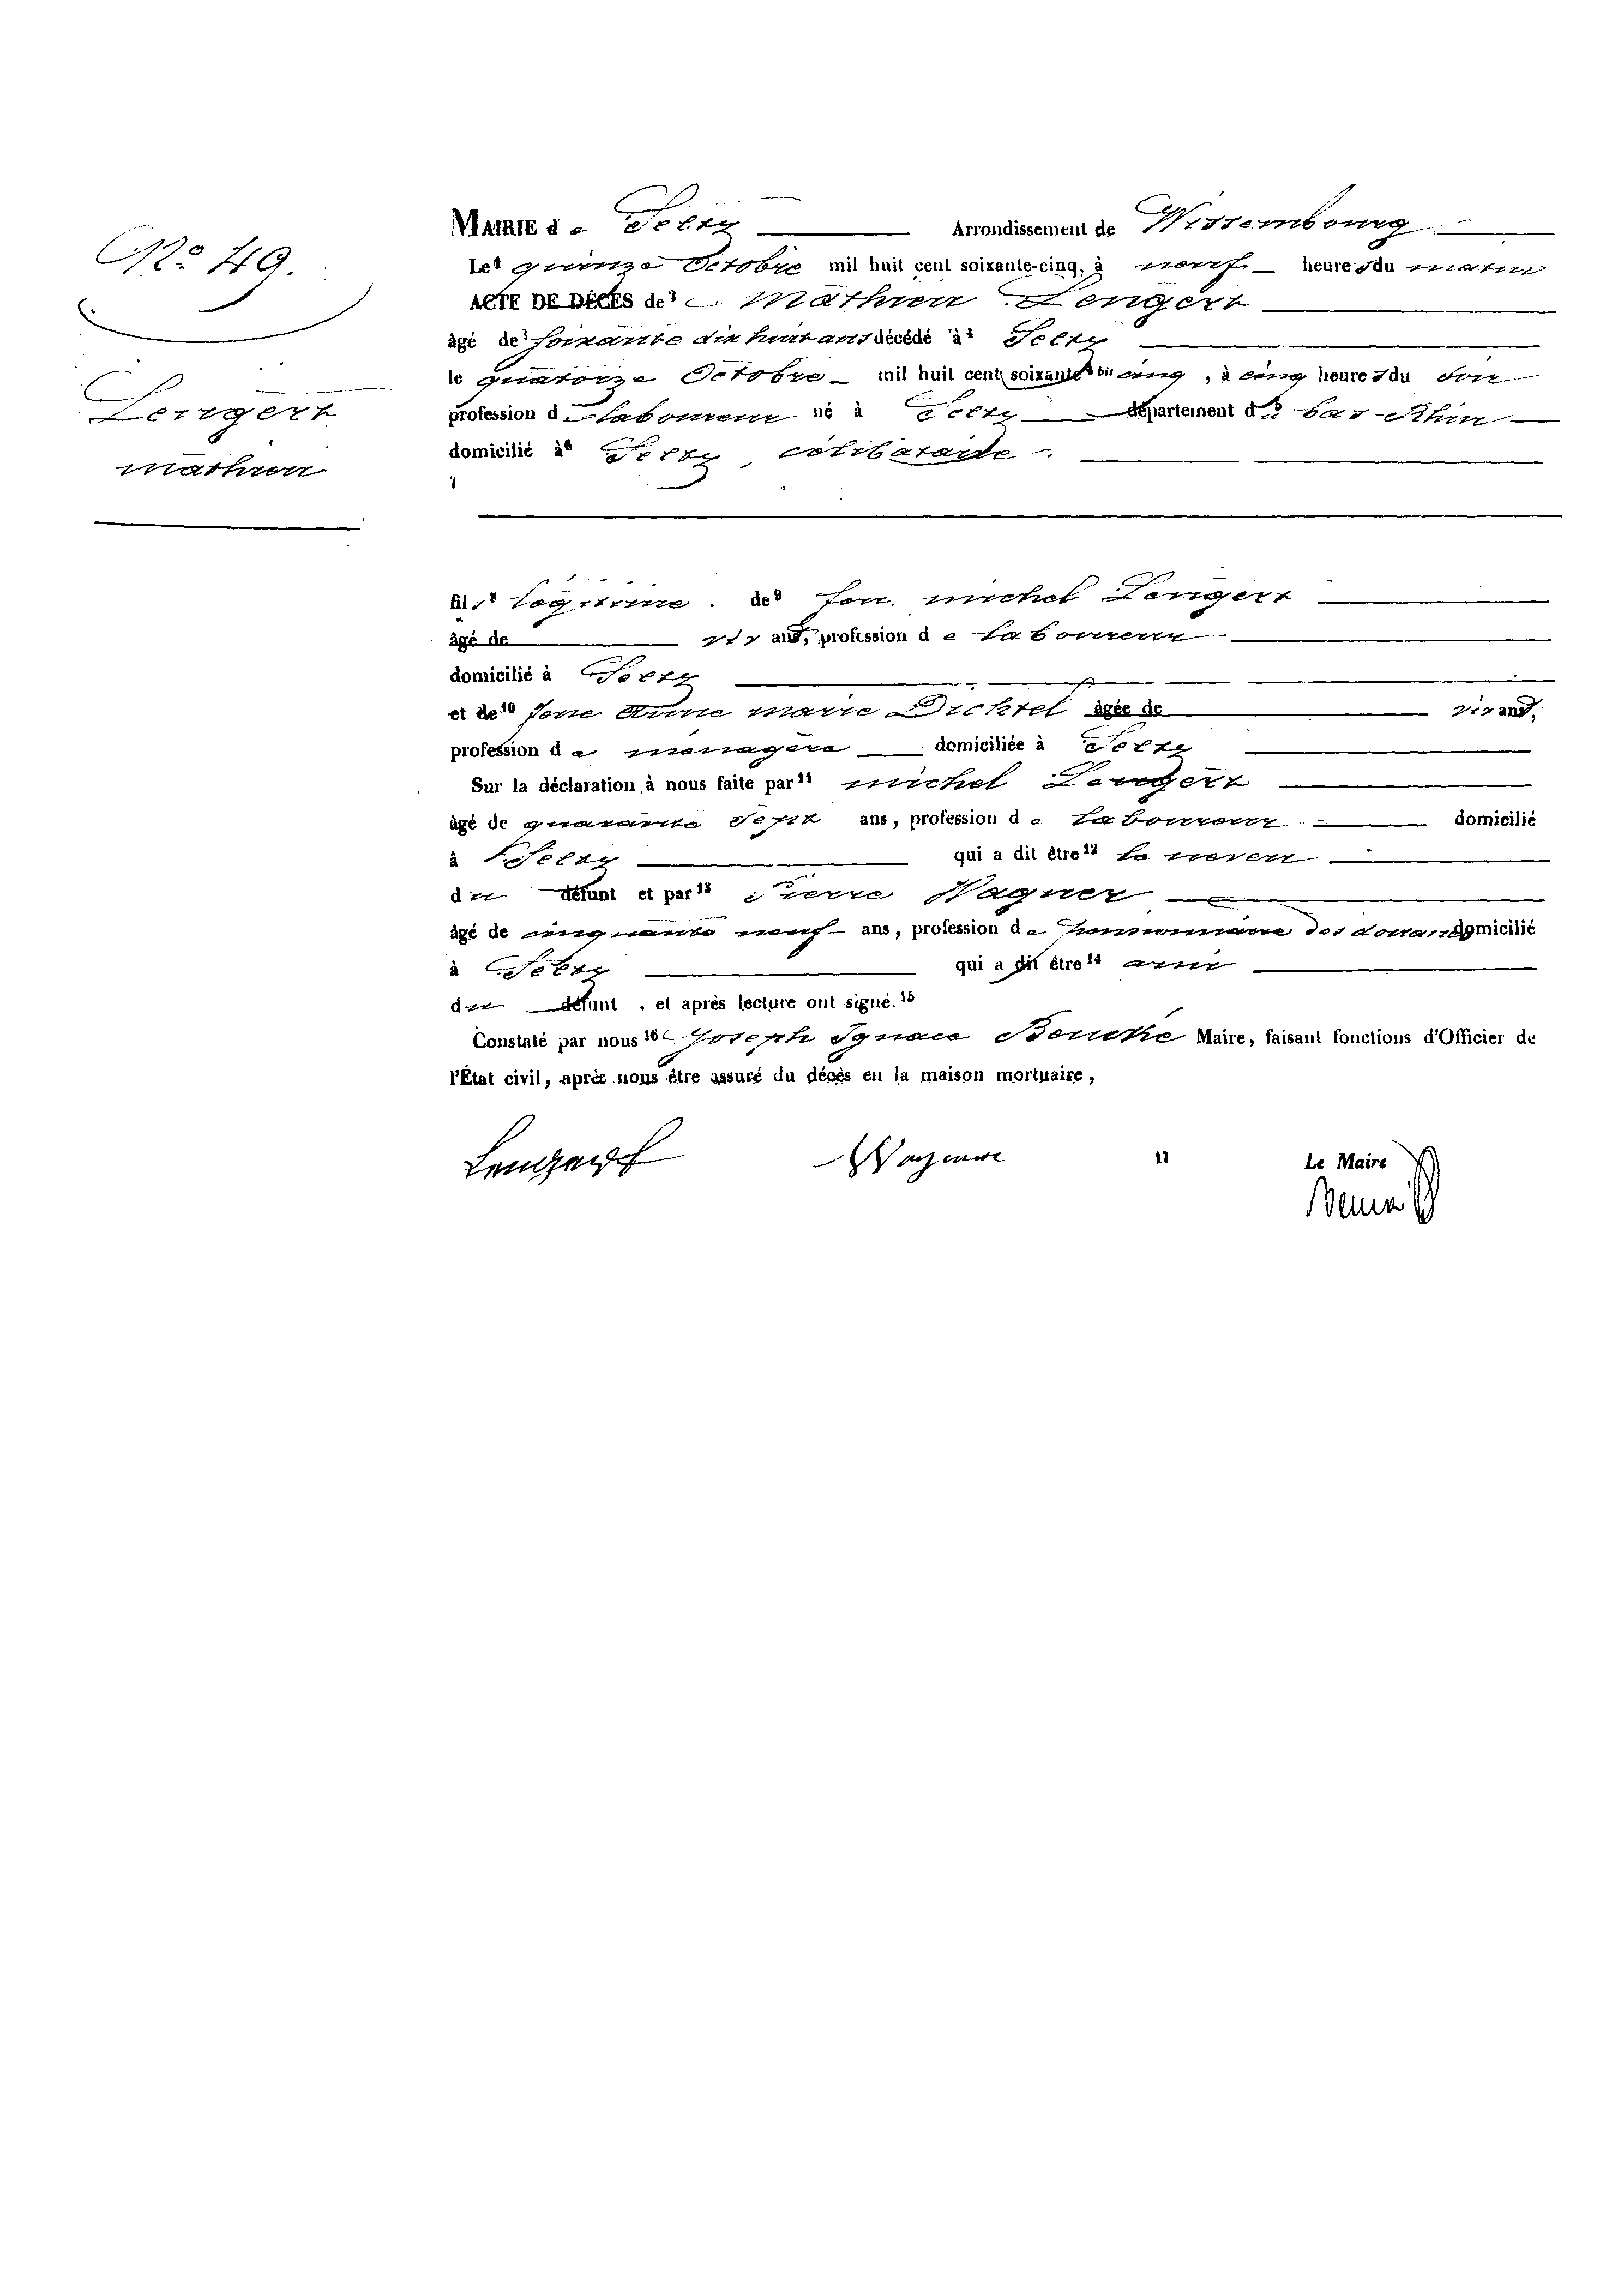 No 49.
Lengert
mathieu
MAIRIE de Seltz Arrondissement de Wissembourg
Le¹ quinze Octobre mil huit cent soixante-cinq, à neuf heures du matin
ACTE DE DÉCÈS de² Mathieu Lengert
âgé de³ soixante dix huit ans décédé à⁴ Seltz
le quatorze Octobre mil huit cent soixante⁴ bis cinq, à cinq heures du soir
profession de laboureur né à Seltz département du bas-Rhin
domicilié à⁶ Seltz, célibataire.
7
fils⁸ légitime de⁹ feu michel Lengert
âgé de vivant, profession de laboureur
domicilié à Seltz
et de¹⁰ feue Anne marie Dichtel âgée de vivand,
profession de menagère domiciliée à Seltz
Sur la déclaration à nous faite par¹¹ michel Lengert
âgé de quarante Sept ans, profession de laboureur domicilié
à Seltz qui a dit être¹² le neveu
du défunt et par¹³ Pierre Wagner
âgé de cinquante neuf ans, profession de pensionnaire des douanes domicilié
à Seltz qui a dit être¹⁴ ami
du défunt, et après lecture ont signé.¹⁵
Constaté par nous¹⁶ Joseph Ignace Maire, faisant fonctions d'Officier de
l'État civil, après nous être assuré du décès en la maison mortuaire,
Lengert Wagner 17 Le Maire